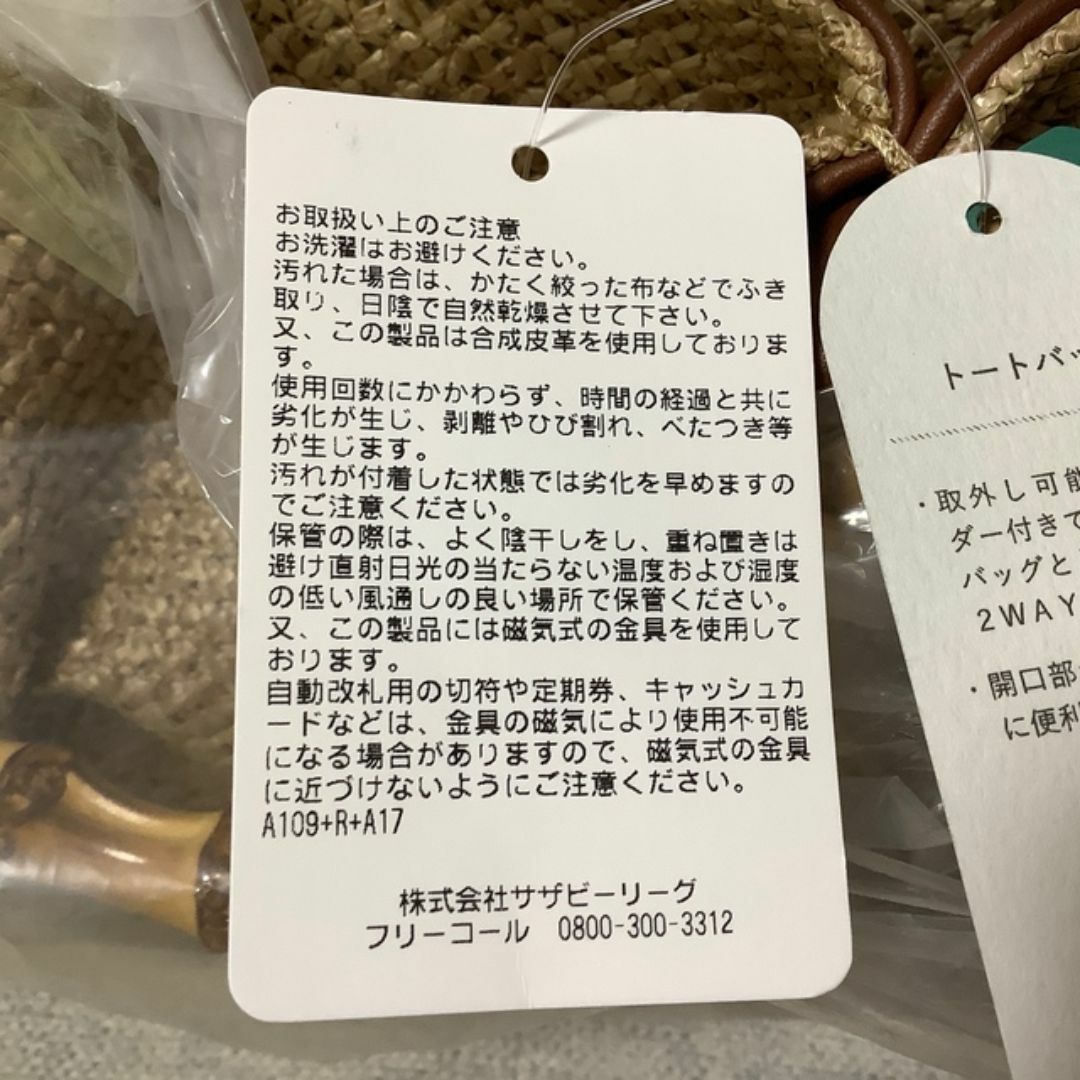 お取扱い上のご注意
お洗濯はお避けください。
汚れた場合は、かたく絞った布などでふき
取り、日陰で自然乾燥させて下さい。
又、この製品は合成皮革を使用しておりま
す。
使用回数にかかわらず、時間の経過と共に
劣化が生じ、剥離やひび割れ、べたつき等
が生じます。
汚れが付着した状態では劣化を早めますの
でご注意ください。
保管の際は、よく陰干しをし、重ね置きは
避け直射日光の当たらない温度および湿度
の低い風通しの良い場所で保管ください。
又、この製品には磁気式の金具を使用して
おります。
自動改札用の切符や定期券、キャッシュカ
ードなどは、金具の磁気により使用不可能
になる場合がありますので、磁気式の金具
に近づけないようにご注意ください。
A109+R+A17
株式会社サザビーリーグ
フリーコール 0800-300-3312
トートバッ
・取外し可能
ダー付きで
バッグと
2WAY
・開口部
に便利